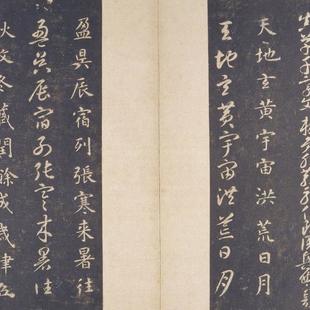 天地玄黃宇宙洪荒日月
天地玄黃宇宙洪荒日月
盈昃辰宿列張寒来暑往
盈昃辰宿列張寒来暑往
收冬藏閏餘成歲律